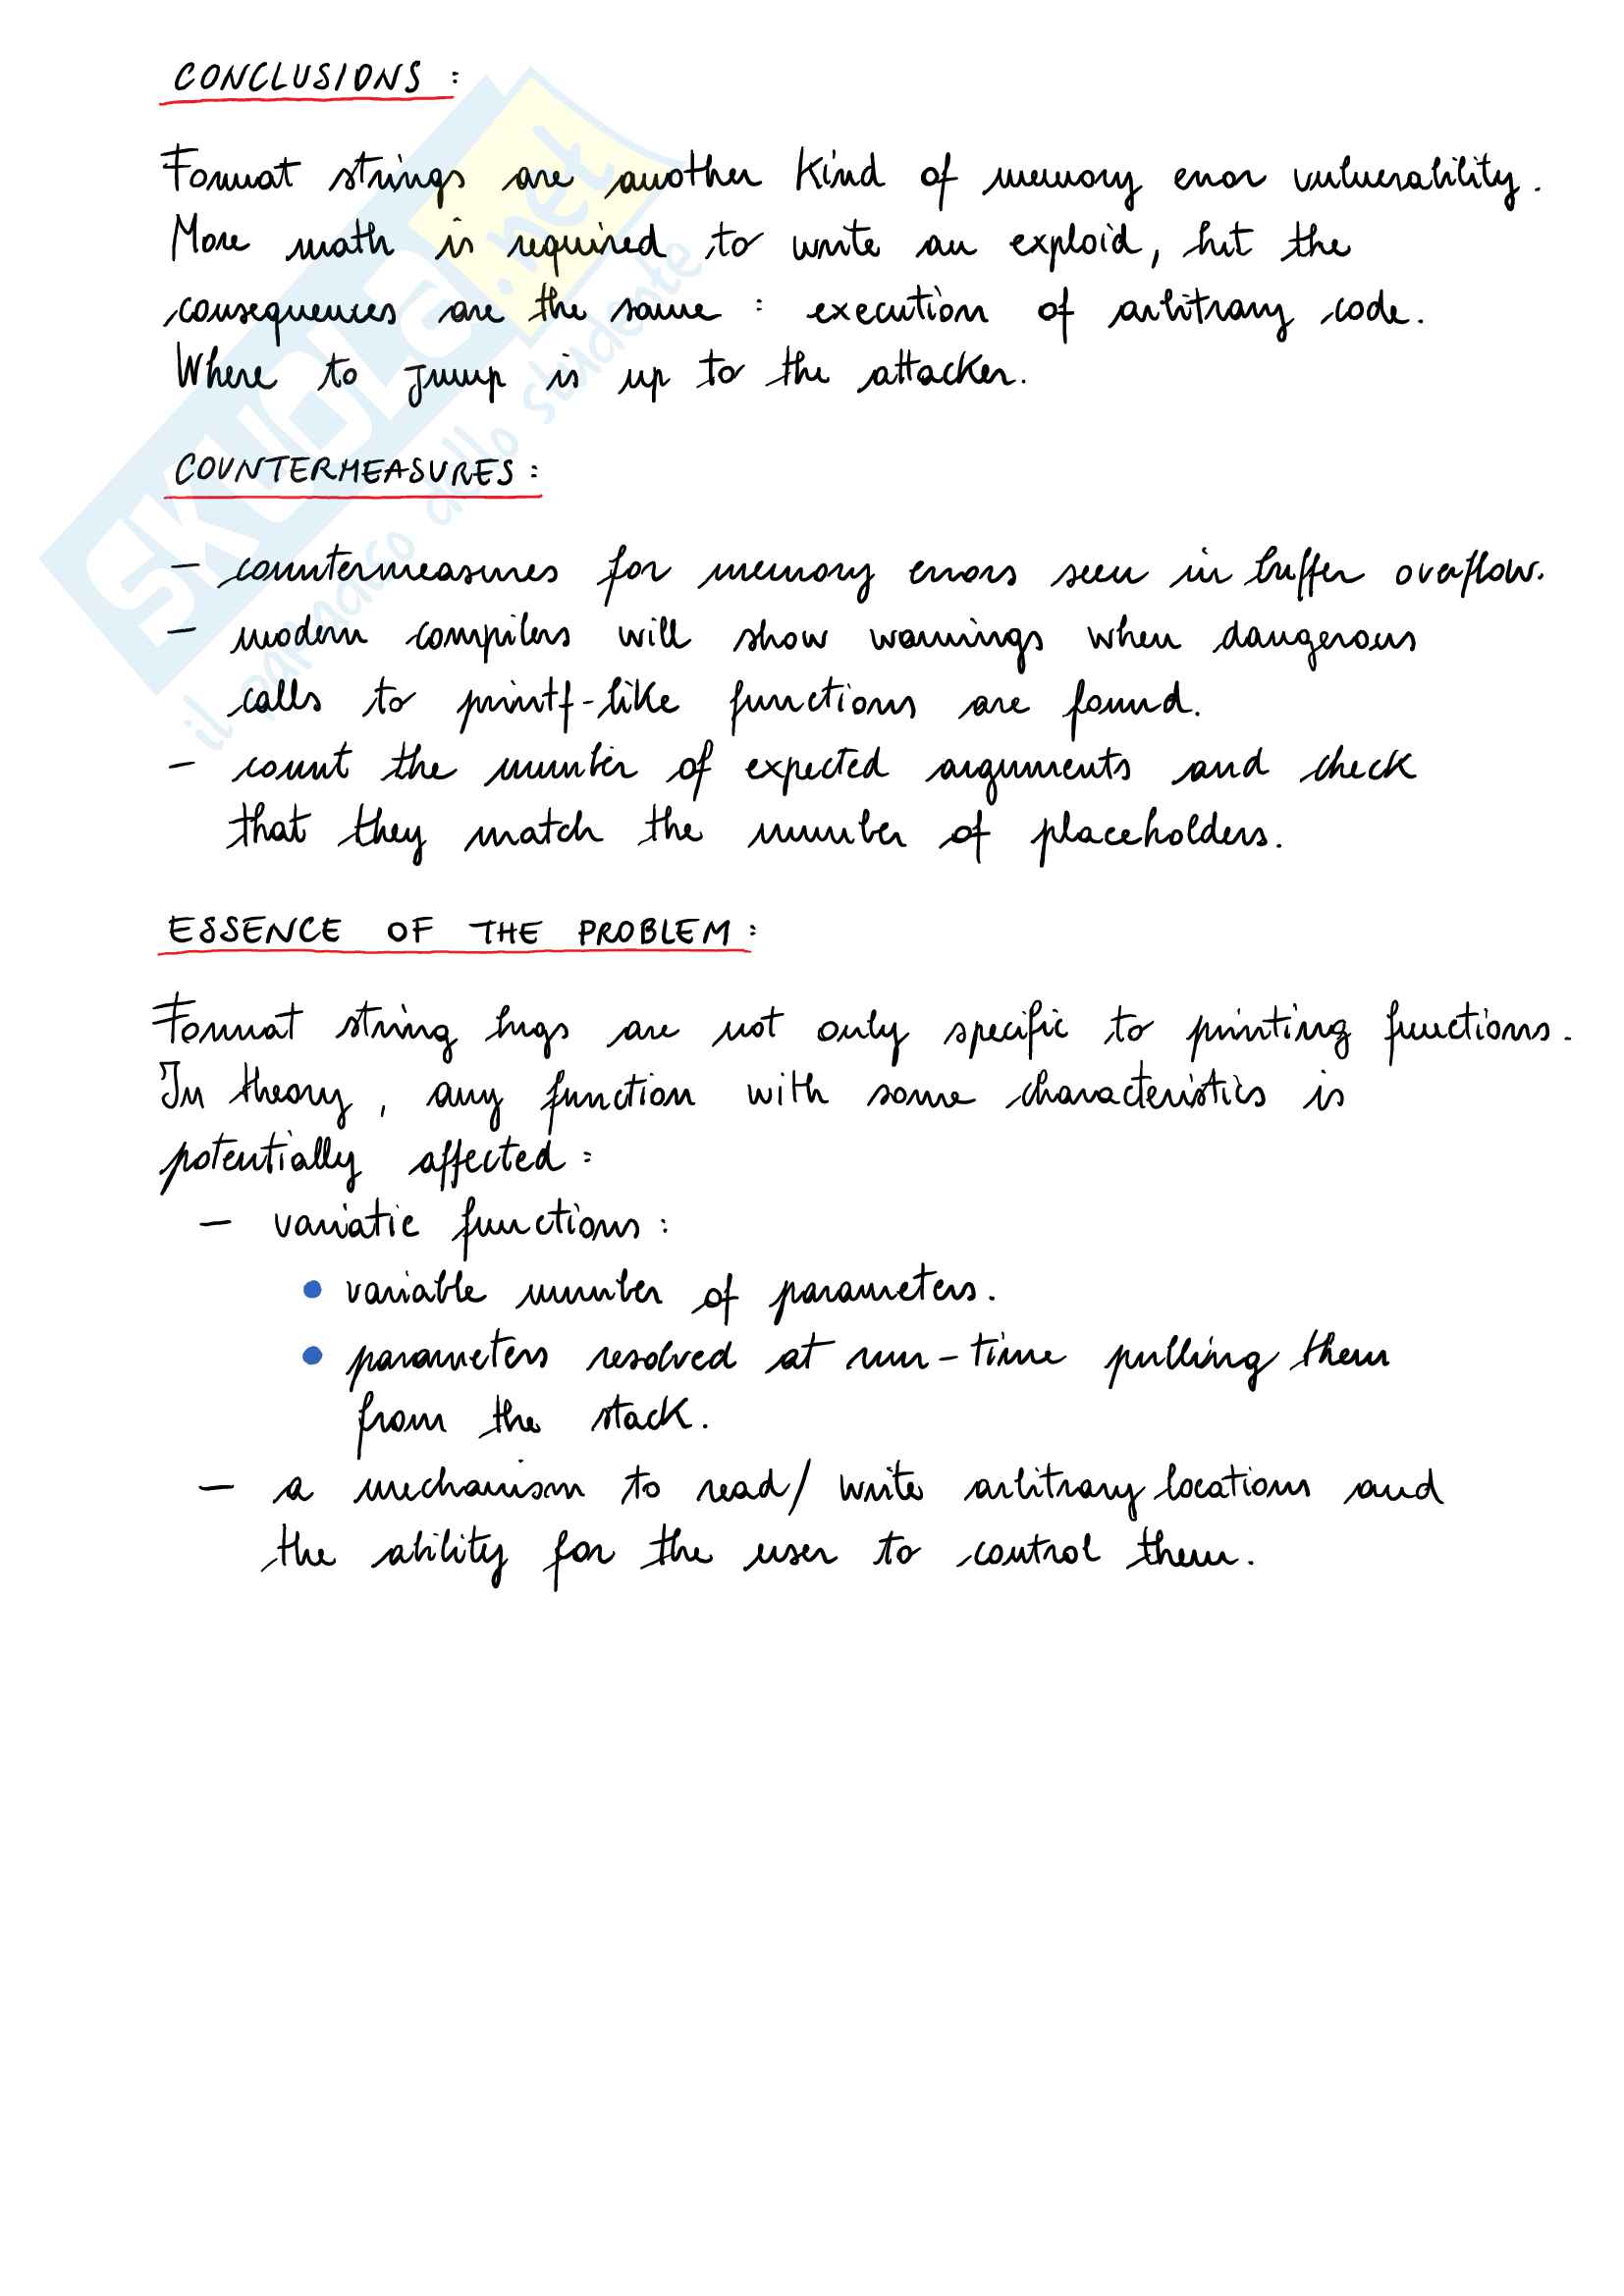 CONCLUSIONS :
Format strings are another Kind of memory error vulnerability.
More math is required to write an exploid, but the
consequences are the same : execution of arbitrary code.
Where to jump is up to the attacker.
COUNTERMEASURES :
- countermeasures for memory errors seen in buffer overflow.
- modern compilers will show warnings when dangerous
calls to printf-like functions are found.
- count the number of expected arguments and check
that they match the number of placeholders.
ESSENCE OF THE PROBLEM :
Format string bugs are not only specific to printing functions.
In theory, any function with some characteristics is
potentially affected :
- variatic functions :
• variable number of parameters.
• parameters resolved at run-time pulling them
from the stack.
- a mechanism to read/write arbitrary locations and
the ability for the user to control them.
SKUOLA.net
il paradiso dello studente